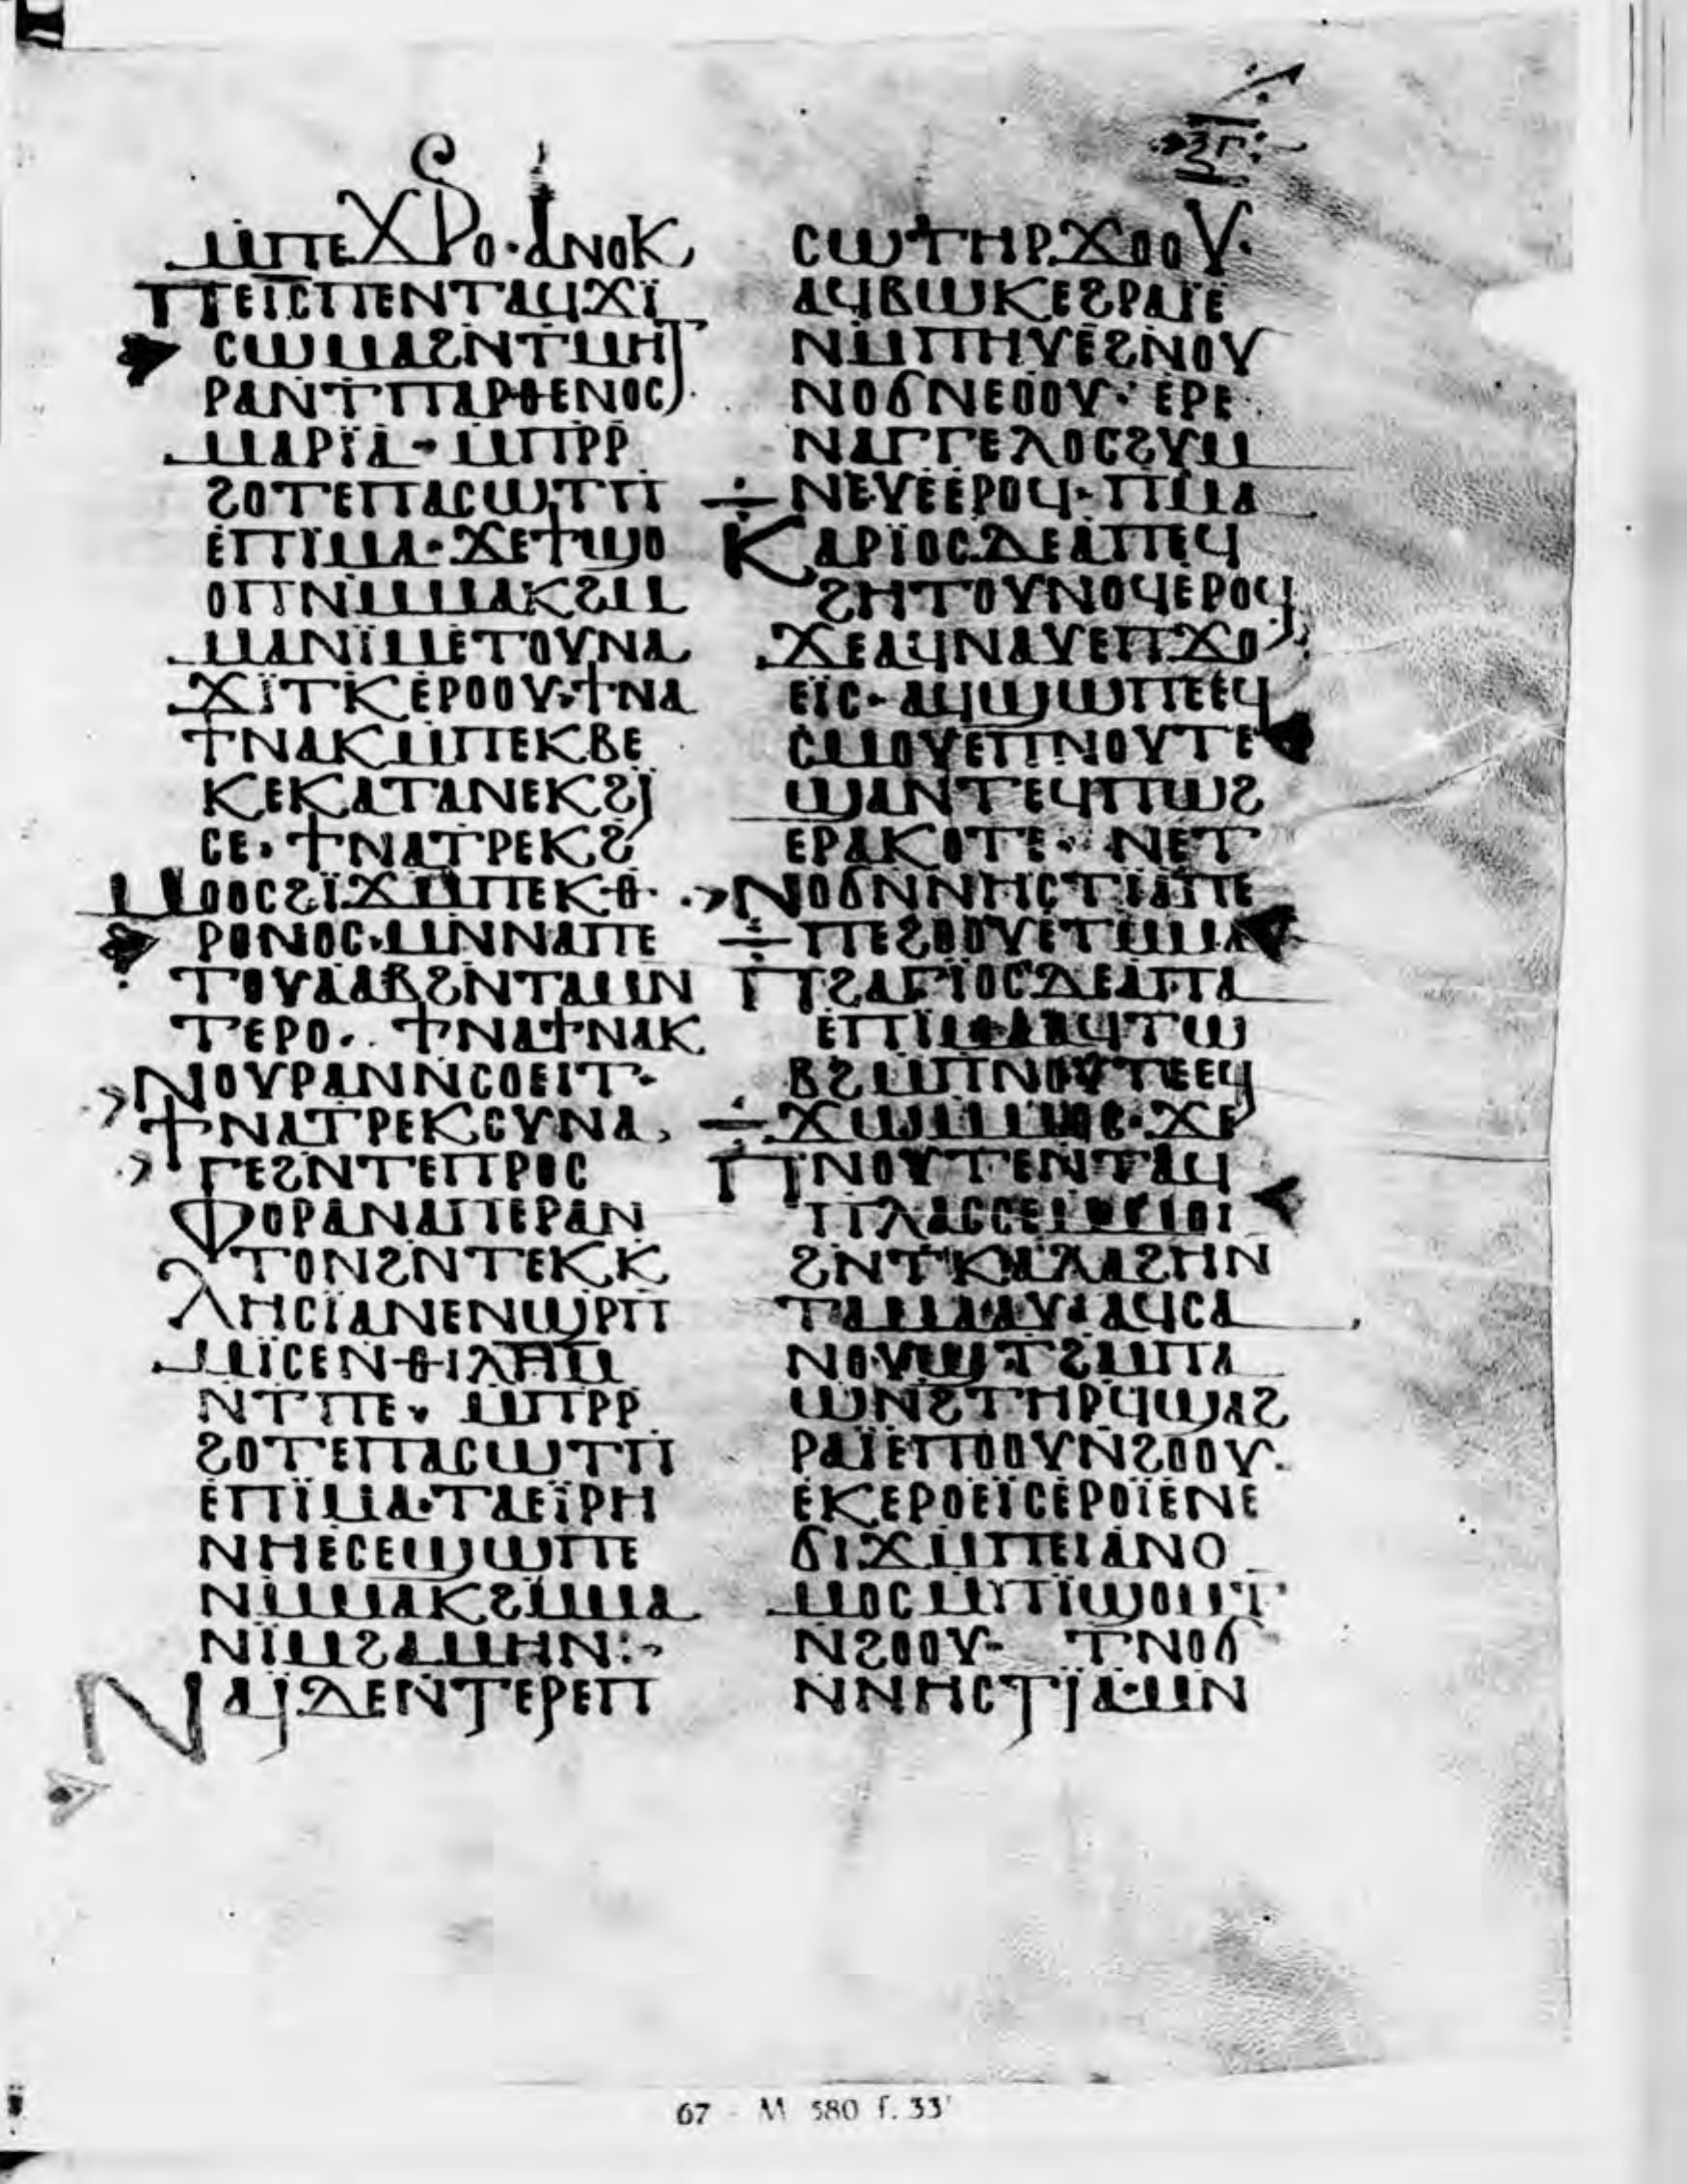 ⲝⲅ
ⲙⲡⲉϫⲣⲟ·ⲁⲛⲟⲕ
ⲡⲉⲓ̅ⲥ̅ⲡⲉⲛⲧⲁϥϫⲓ̈
ⲥⲱⲙⲁϩⲛⲧⲙⲏⲧ
ⲣⲁⲛⲧⲡⲁⲣⲑⲉⲛⲟⲥ·
ⲙⲁⲣⲓ̈ⲁ·ⲙⲡⲣⲣ
ϩⲟⲧⲉⲡⲁⲥⲱⲧⲡ
ⲉⲡⲓ̈ⲙⲁ·ϫⲉϯϣⲟ
ⲟⲡⲛⲙⲙⲁⲕϩⲙ
ⲙⲁⲛⲓ̈ⲙⲉⲧⲟⲩⲛⲁ
ϫⲓ̈ⲧⲕⲉⲣⲟⲟⲩ·ϯⲛⲁ
ϯⲛⲁⲕⲙⲡⲉⲕⲃⲉ
ⲕⲉⲕⲁⲧⲁⲛⲉⲕϩⲓ
ⲥⲉ·ϯⲛⲁⲧⲣⲉⲕϩ
ⲙⲟⲟⲥϩⲓ̈ϫⲙⲡⲉⲕⲑ
ⲣⲟⲛⲟⲥ·ⲙⲛⲛⲁⲡⲉ
ⲧⲟⲩⲁⲁⲃϩⲛⲧⲁⲙⲛ
ⲧⲉⲣⲟ·ϯⲛⲁϯⲛⲁⲕ
ⲛⲟⲩⲣⲁⲛⲛⲥⲟⲉⲓⲧ·
ϯⲛⲁⲧⲣⲉⲕⲥⲩⲛⲁ
ⲅⲉϩⲛⲧⲉⲡⲣⲟⲥ
ⲫⲟⲣⲁⲛⲁⲡⲉⲣⲁⲛ
ⲧⲟⲛϩⲛⲧⲉⲕⲕ
ⲗⲏⲥⲓⲁⲛⲉⲛϣⲣⲡ
ⲙⲓ̈ⲥⲉⲛⲑⲓⲗⲏⲙ
ⲛⲧⲡⲉ· ⲙⲡⲣⲣ
ϩⲟⲧⲉⲡⲁⲥⲱⲧⲡ
ⲉⲡⲓ̈ⲙⲁ·ⲧⲁⲉⲓ̈ⲣⲏ
ⲛⲏⲉⲥⲉϣⲱⲡⲉ
ⲛⲙⲙⲁⲕϩⲙⲙⲁ
ⲛⲓⲙϩⲁⲙⲏⲛ:·
ⲛⲁⲓⲇⲉⲛⲧⲉⲣⲉⲡ
ⲥⲱⲧⲏⲣϫⲟⲟⲩ·
ⲁϥⲃⲱⲕⲉϩⲣⲁⲓ̈ⲉ
ⲛⲙⲡⲏⲩⲉϩⲛⲟⲩ
ⲛⲟϭⲛⲉⲟⲟⲩ·ⲉⲣⲉ
ⲛⲁⲅⲅⲉⲗⲟⲥϩⲩⲙ
ⲛⲉⲩⲉⲉⲣⲟϥ·ⲡⲙⲁ
ⲕⲁⲣⲓ̈ⲟⲥⲇⲉⲁⲡⲉϥ
ϩⲏⲧⲟⲩⲛⲟϥⲉⲣⲟϥ
ϫⲉⲁϥⲛⲁⲩⲉⲡϫⲟ
ⲉⲓ̈ⲥ·ⲁϥϣⲱⲡⲉⲉϥ
ⲥⲙⲟⲩⲉⲡⲛⲟⲩⲧⲉ
ϣⲁⲛⲧⲉϥⲡⲱϩ
ⲉⲣⲁⲕⲟⲧⲉ· ⲛⲉⲧ
ⲛⲟϭⲛⲛⲏⲥⲧⲓⲁⲡⲉ
ⲡⲉϩⲟⲟⲩⲉⲧⲙⲙⲁ
ⲡϩⲁⲅⲓ̈ⲟⲥⲇⲉⲁⲡⲁ
ⲉⲡⲓ̈ⲙⲁⲁϥⲧⲱ
ⲃϩⲙⲡⲛⲟⲩⲧⲉⲉϥ
ϫⲱⲙⲙⲟⲥ·ϫⲉ
ⲡⲛⲟⲩⲧⲉⲛⲧⲁϥ
ⲡⲗⲁⲥⲥⲉⲙⲙⲟⲓ
ϩⲛⲧⲕⲁⲗⲁϩⲏⲛ
ⲧⲁⲙⲁⲁⲩ·ⲁϥⲥⲁ
ⲛⲟⲩϣⲧϩⲙⲡⲁ
ⲱⲛϩⲧⲏⲣϥϣⲁϩ
ⲣⲁⲓ̈ⲉⲡⲟⲟⲩⲛϩⲟⲟⲩ·
ⲉⲕⲉⲣⲟⲉⲓ̈ⲥⲉⲣⲟⲓ̈ⲉⲛⲉ
ϭⲓϫⲙⲡⲉⲓⲁⲛⲟ
ⲙⲟⲥⲙⲡⲓ̈ϣⲟⲙⲧ
ⲛϩⲟⲟⲩ· ⲧⲛⲟϭ
ⲛⲛⲏⲥⲧⲓⲁ·ⲙⲛ
67 - M 580 f. 33ʳ